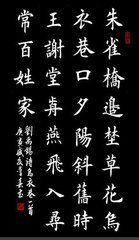 朱雀橋邊埜草花烏
衣巷口夕陽斜舊時
王謝堂歬燕飛入尋
常百姓家
劉禹錫詩烏衣巷一首
庚寅歲